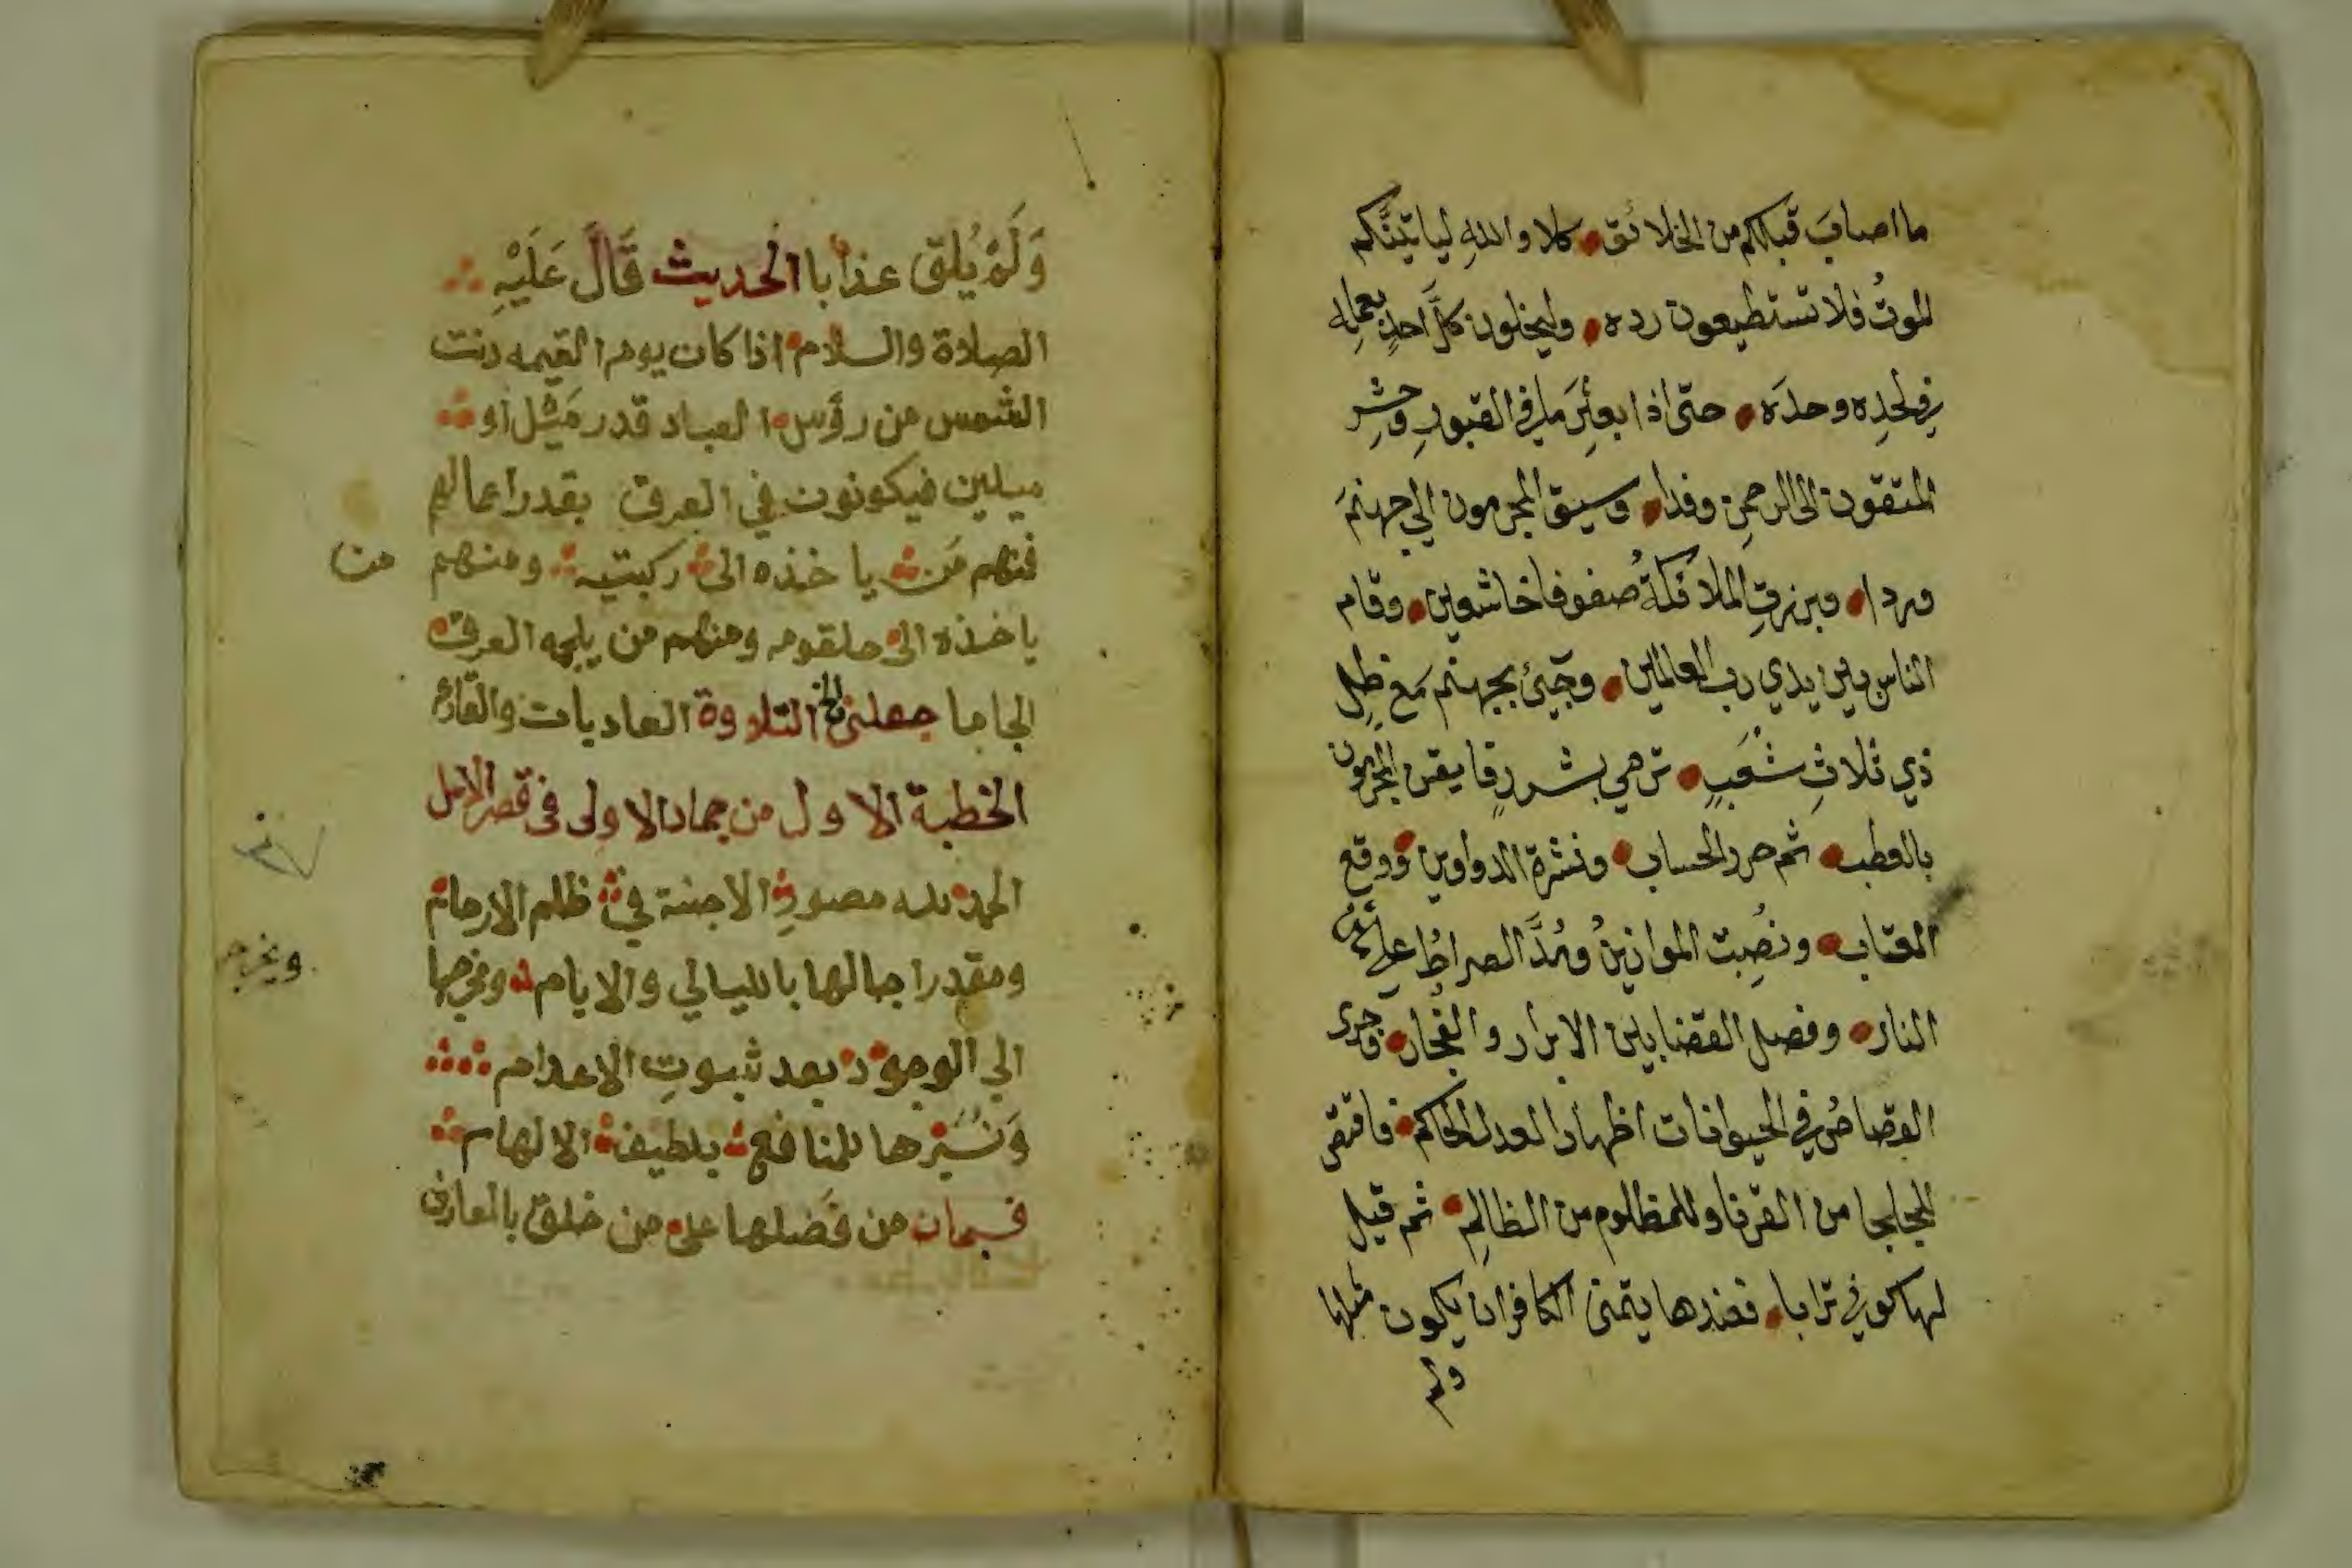 ما اصابَ قبلكم من الخلائق كلا والله لياتينَّكم
الموتُ فلا تستطيعون رده وليخلون كلَّ احدٍ بعمله
في لحدِه وحدَه حتى اذا بعثِرَ ما في القبورِ وحشِر
المتقون الى الرحمنِ وفدا وسيق المجرمون الي جهنمَ
وردا وبرزتِ الملائكةُ صفوفا خاشعين وقام
الناس بين يدي رب العالمين وجيئ بجهنم مع ظل
ذي ثلاثِ شعَبٍ ترمي بشررٍ فايقن المجرمون
بالعطب ثم حرر الحساب ونشرة الدواوين ووقع
العتاب ونصِبت الموازينُ ومُدَّ الصراطُ على متن
النار وفصل القضا بين الابرار والفجار وجرى
القصاصُ في الحيوانات اظهارا لعدل الحاكم فاقتص
للجلجا من القرنا وللمظلوم من الظالمِ ثم قيل
لها كوني ترابا فعندها يتمنى الكافر ان يكون مثلها
ولم
وَلَمْ يُلقى عذابا الحديث قَالَ عَلَيْهِ
الصلاة والسلام اذا كان يوم القيمه دنت
الشمس من رؤس العباد قدر مَيْل او
ميلين فيكونون في العرق بقدر اعمالهم
فمنهم مَن ياخذه الى ركبتيه ومنهم
من
ياخذه الى حلقومه ومنهم من يلجمه العرق
الجاما جعلني الخ التلاوة العاديات والقارعه
الخطبة الاول من جماد الاولى في قصر الامل
الحمد لله مصورِ الاجنة في ظلم الارحام
ومقدر اجالها بالليالي والايام ومخرجها
ويخرج
الي الوجود بعد ثبوتِ الاعدام
وَمُسَيّرها للمنافع بلطيف الالهام
فسبحان من فَضلها على من خلق بالمعارف